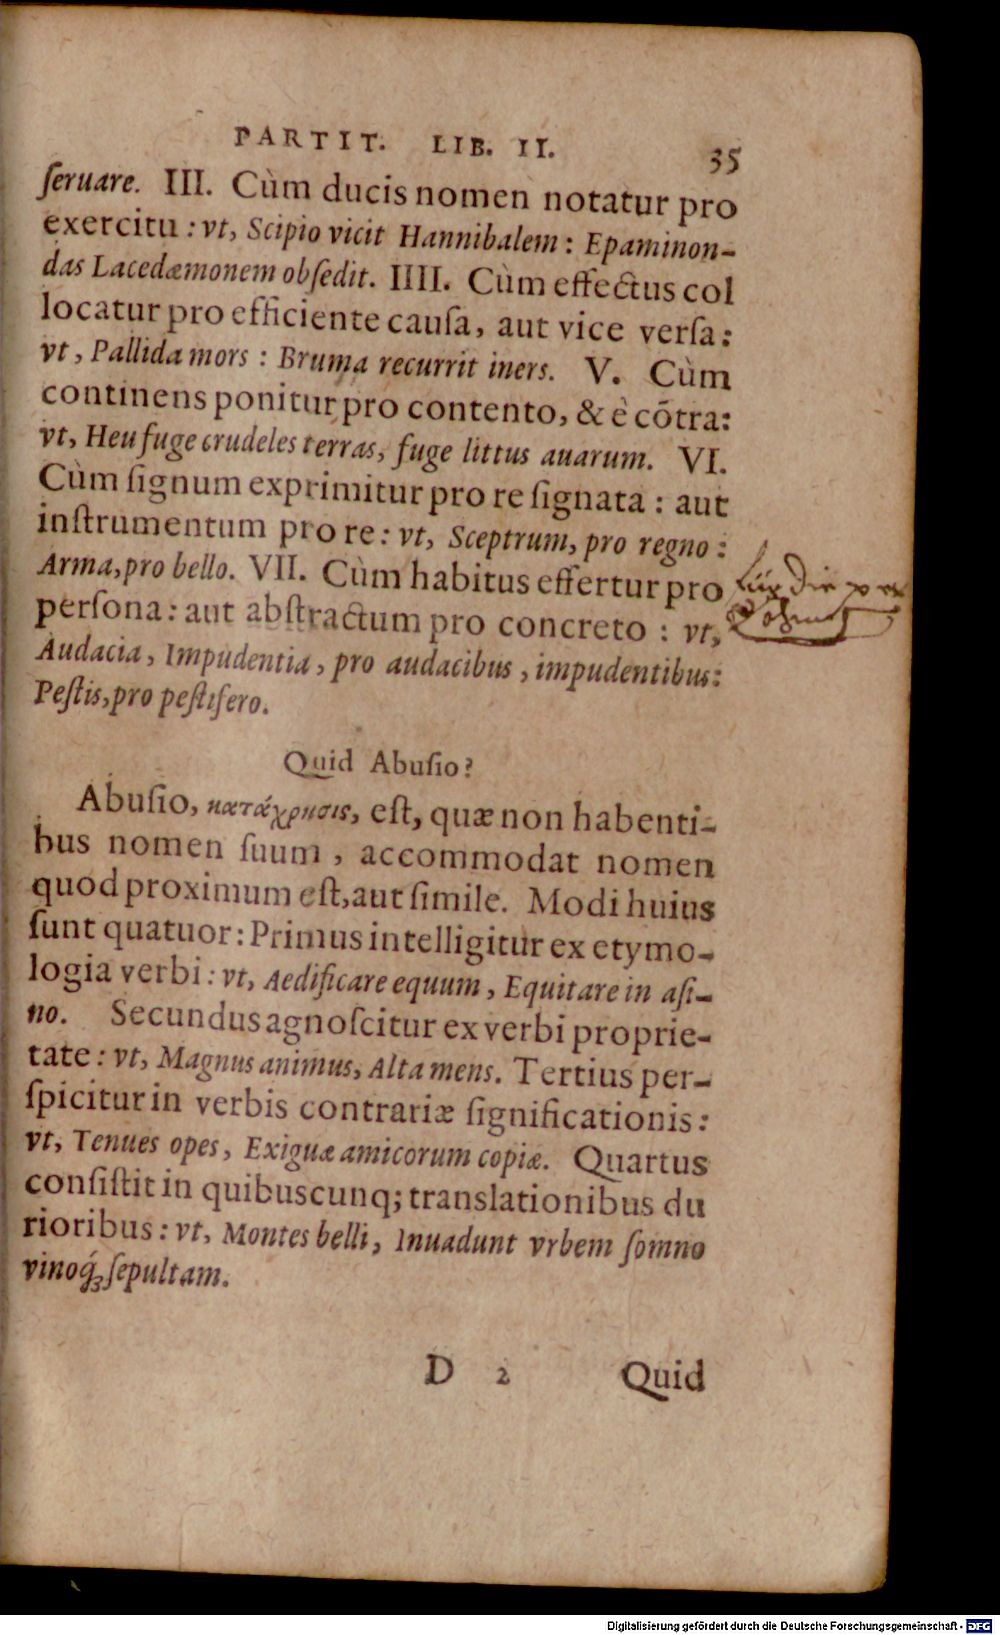 PARTIT. LIB. II. 35
ſeruare. III. Cùm ducis nomen notatur pro
exercitu: vt, Scipio vicit Hannibalem: Epaminon-
das Lacedæmonem obſedit. IIII. Cùm effectus col
locatur pro efficiente cauſa, aut vice verſa:
vt, Pallida mors: Bruma recurrit iners. V. Cùm
continens ponitur pro contento, & è cōtra:
vt, Heu fuge crudeles terras, fuge littus auarum. VI.
Cùm ſignum exprimitur pro re ſignata: aut
inſtrumentum pro re: vt, Sceptrum, pro regno:
Arma, pro bello. VII. Cùm habitus effertur pro
perſona: aut abſtractum pro concreto: vt,
Audacia, Impudentia, pro audacibus, impudentibus:
Peſtis, pro peſtifero.
für die
Quid Abuſio?
Abuſio, κατάχρησις, eſt, quæ non habenti-
bus nomen ſuum, accommodat nomen
quod proximum eſt, aut ſimile. Modi huius
ſunt quatuor: Primus intelligitur ex etymo-
logia verbi: vt, Aedificare equum, Equitare in aſi-
no. Secundus agnoſcitur ex verbi proprie-
tate: vt, Magnus animus, Alta mens. Tertius per-
ſpicitur in verbis contrariæ ſignificationis:
vt, Tenues opes, Exiguæ amicorum copiæ. Quartus
conſiſtit in quibuscunq; translationibus du
rioribus: vt, Montes belli, Inuadunt vrbem ſomno
vinoq́ꝫ ſepultam.
D 2 Quid
Digitalisierung gefördert durch die Deutsche Forschungsgemeinschaft - DFG